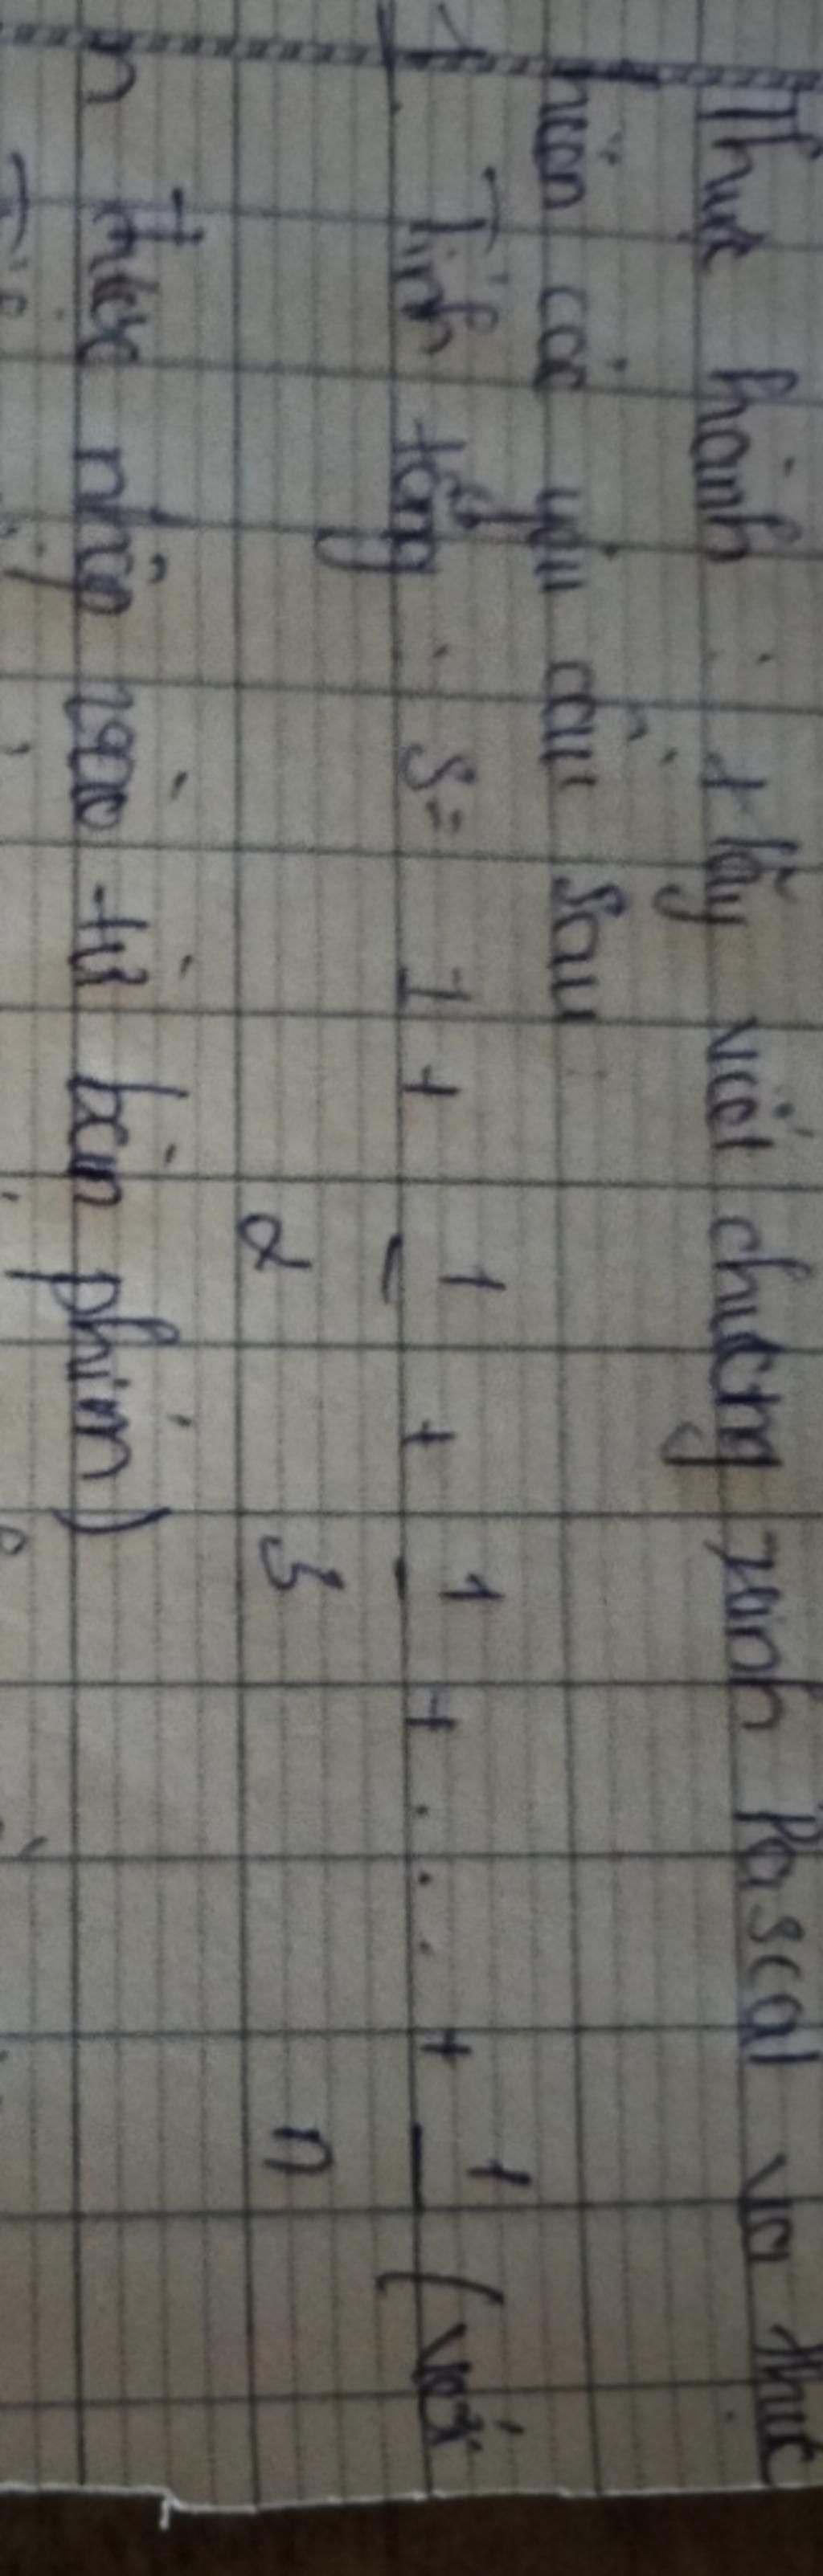 Thực hành : Hãy viết chương trình Pascal và thực
hiện các yêu cầu sau
1. Tính tổng : S = 1 + 1/2 + 1/3 + ... + 1/n (với
n được nhập vào từ bàn phím)